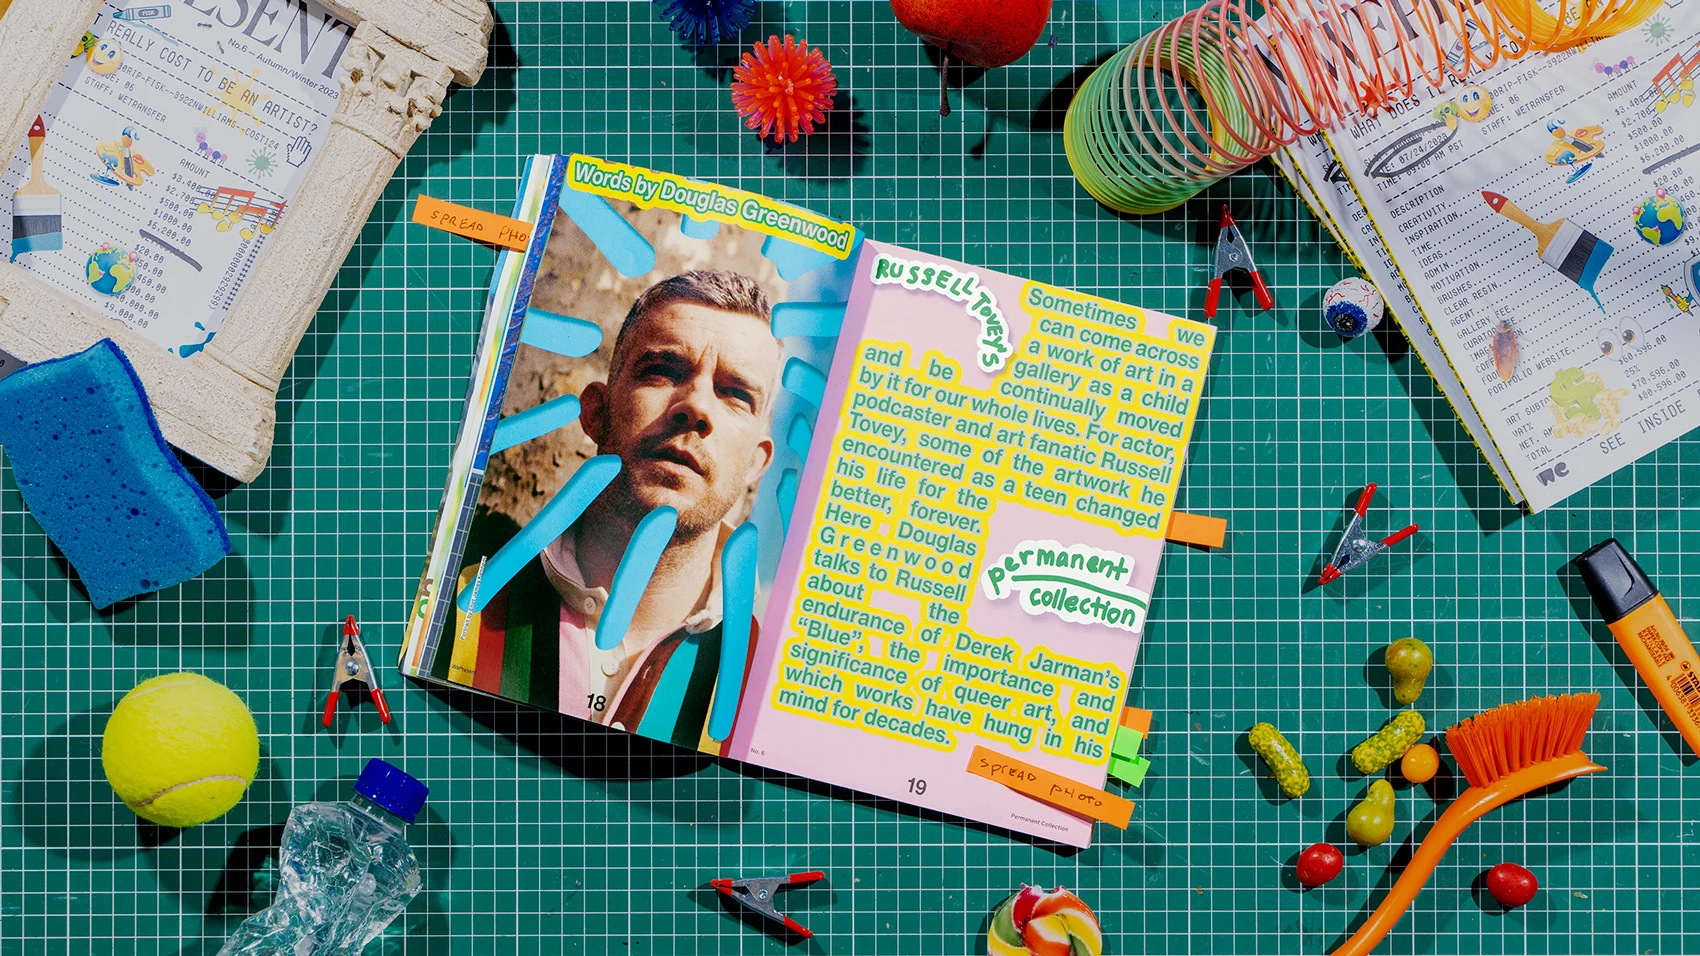 ESENT
No.6 – Autumn/Winter 2023
REALLY COST TO BE AN ARTIST?
STAFF: WETRANSFER
AMOUNT
$3,400.00
$1000.00
$6,200.00
$20.00
$9,000.00
SPREAD PHO
Words by Douglas Greenwood
18
RUSSELL TOVEY'S
Sometimes we
can come across
a work of art in a
gallery as a child
and be continually moved
by it for our whole lives. For actor,
podcaster and art fanatic Russell
Tovey, some of the artwork he
encountered as a teen changed
his life for the
better, forever.
Here Douglas
Greenwood
talks to Russell
about the
endurance of Derek Jarman's
“Blue”, the importance and
significance of queer art, and
which works have hung in his
mind for decades.
permanent
collection
No. 6
19
Permanent Collection
SPREAD
PHOTO
WHAT DOES I
STAFF: WETRANSFER
TIME: 09:00 AM PST
DESCRIPTION
AMOUNT
CREATIVITY.
INSPIRATION.
TIME.
IDEAS.
ADMIN.
MOTIVATION
BRUSHES.
CLEAR RESIN.
AGENT
GALLERY FEE.
PORTFOLIO WEBSITE
$500.00
$1000.00
$6,200.00
$60,596.00
25%
$70,596.00
TOTAL
SEE INSIDE
we